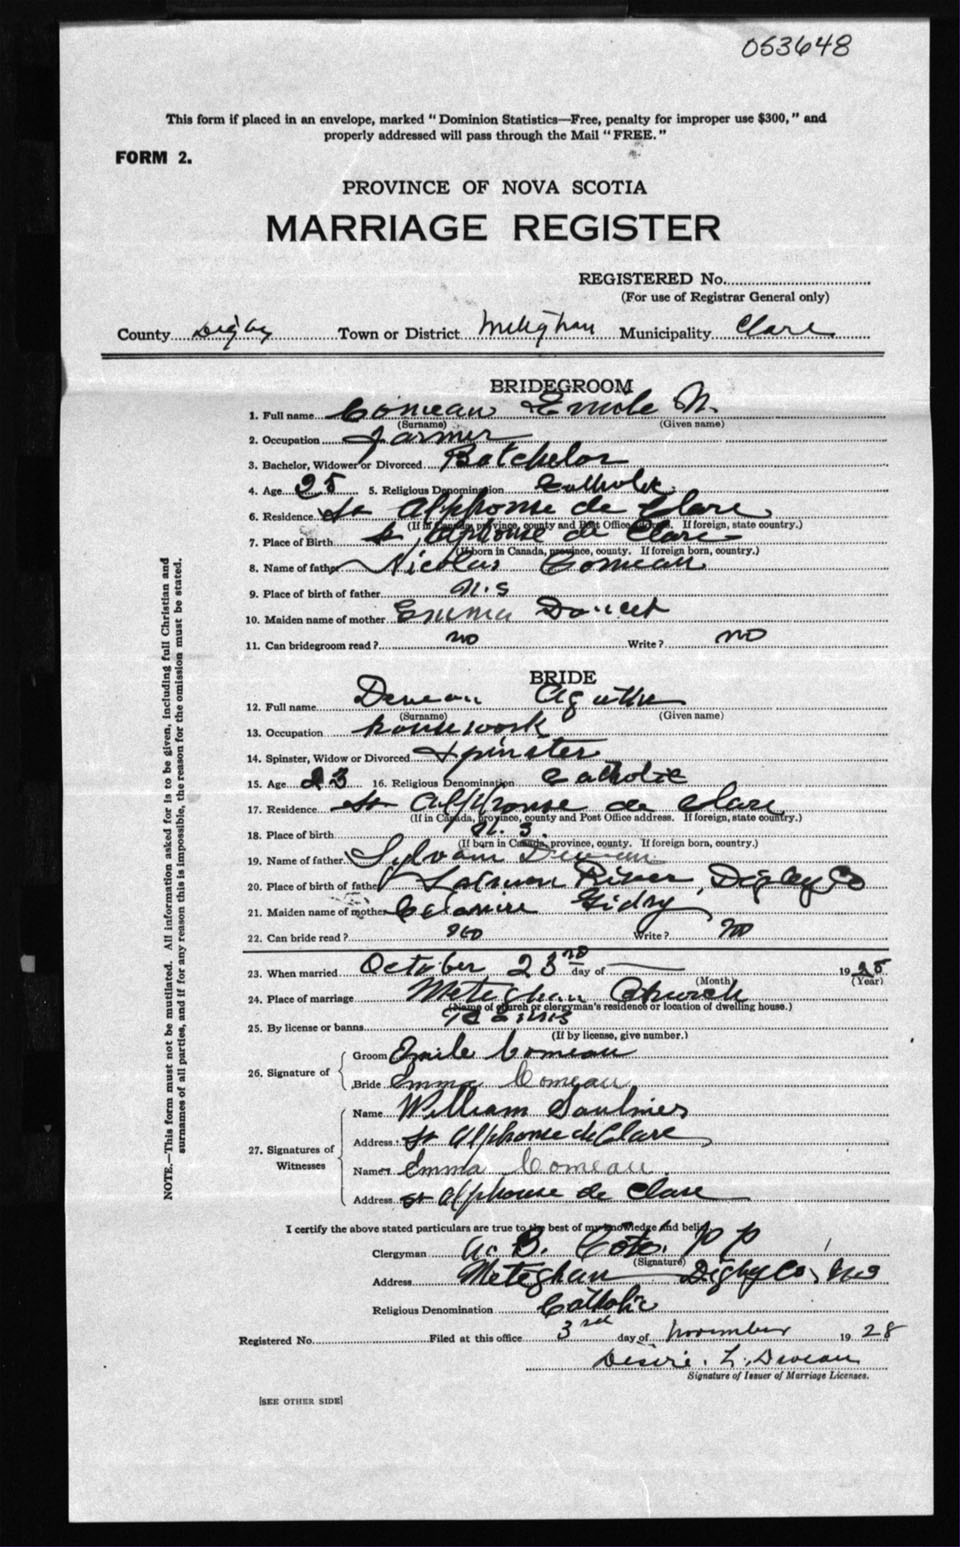 053648
This form if placed in an envelope, marked "Dominion Statistics—Free, penalty for improper use $300," and
properly addressed will pass through the Mail "FREE."
FORM 2.
PROVINCE OF NOVA SCOTIA
MARRIAGE REGISTER
REGISTERED No.
(For use of Registrar General only)
County Digby Town or District Meteghan Municipality Clare
BRIDEGROOM
1. Full name Comeau Emile N.
(Surname) (Given name)
2. Occupation Farmer
3. Bachelor, Widower or Divorced Batchelor
4. Age 25 5. Religious Denomination Catholic
6. Residence St Alphonse de Clare
(If in Canada, province, county and Post Office address. If foreign, state country.)
7. Place of Birth St Alphonse de Clare
(If born in Canada, province, county. If foreign born, country.)
8. Name of father Nicolas Comeau
9. Place of birth of father N.S
10. Maiden name of mother Emma Doucet
11. Can bridegroom read? no Write? no
BRIDE
12. Full name Deveau Agathe
(Surname) (Given name)
13. Occupation housework
14. Spinster, Widow or Divorced Spinster
15. Age 23 16. Religious Denomination Catholic
17. Residence St Alphonse de Clare
(If in Canada, province, county and Post Office address. If foreign, state country.)
18. Place of birth N. S.
(If born in Canada, province, county. If foreign born, country.)
19. Name of father Sylvain Deveau
20. Place of birth of father Salmon River, Digby Co
21. Maiden name of mother Gidry
22. Can bride read? no Write? no
23. When married October 23rd day of 19
(Month) (Year)
24. Place of marriage Meteghan Church
(Name of church or clergyman's residence or location of dwelling house.)
25. By license or banns
(If by license, give number.)
26. Signature of
Groom Emile Comeau
Bride Emma Comeau
27. Signatures of Witnesses
Name William Saulnier
Address St Alphonse de Clare
Name Emma Comeau
Address St Alphonse de Clare
I certify the above stated particulars are true to the best of my knowledge and belief.
Clergyman B. P P
(Signature)
Address Meteghan Digby Co, NS
Religious Denomination Catholic
Registered No. Filed at this office 3rd day of November 1928
Desire. L. Deveau
Signature of Issuer of Marriage Licenses.
[SEE OTHER SIDE]
NOTE.—This form must not be mutilated. All information asked for is to be given, including full Christian and
surnames of all parties, and if for any reason this is impossible, the reason for the omission must be stated.